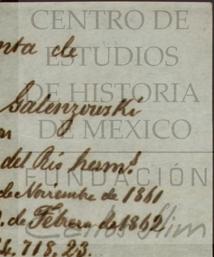 CENTRO DE
nta de
ESTUDIOS
DE HISTORIA
Galenzowski
DE MEXICO
del Rio herm.s
FUNDACIÓN
de Noviembre de 1861
de Febrero de 1862
Carlos Slim
718,23.